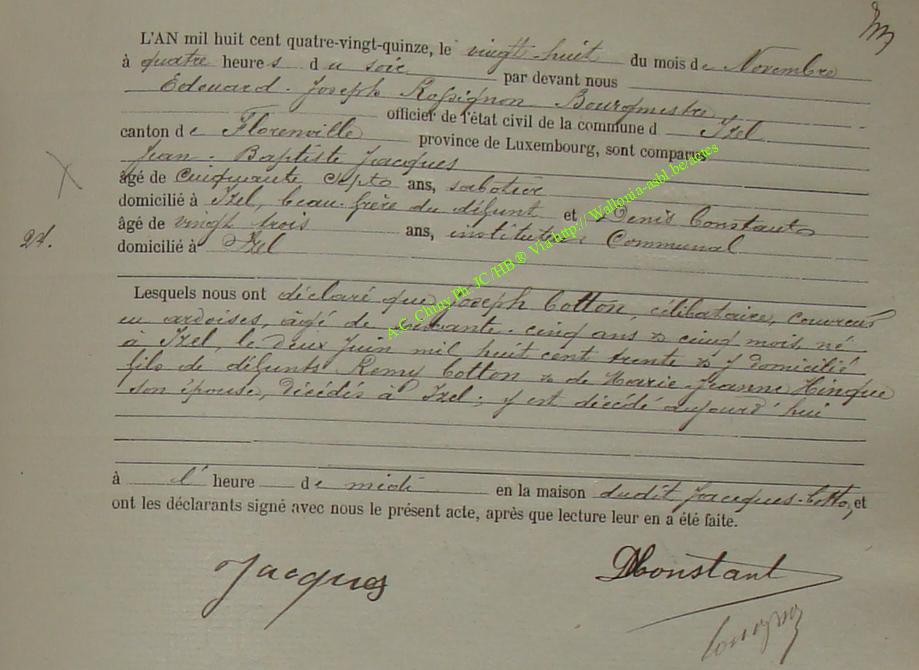 L'AN mil huit cent quatre-vingt-quinze, le vingt-huit du mois de Novembre
à quatre heures du soir par devant nous
Edouard-Joseph Rossignon Bourgmestre
officier de l'état civil de la commune d Izel
canton de Florenville province de Luxembourg, sont comparus
Jean-Baptiste Jacques
âgé de Cinquante septs ans, sabotier
domicilié à Izel, beau-frère du défunt et Denis Constant
âgé de vingt trois ans, instituteur Communal
24. domicilié à Izel
Lesquels nous ont déclaré que Joseph Cotton, célibataire, couvreur
en ardoises, âgé de soixante-cinq ans & cinq mois, né
à Izel, le deux Juin mil huit cent trente & y domicilié
fils de défunts Remy Cotton & de Marie-Jeanne Hinque
son épouse, décédés à Izel; y est décédé aujourd'hui
à l'heure de midi en la maison dudit Jacques-Cotton, et
ont les déclarants signé avec nous le présent acte, après que lecture leur en a été faite.
Jacques
DConstant
A.C. Chiny Ph JC/HB ® Via http:// Wallonia-asbl be/actes